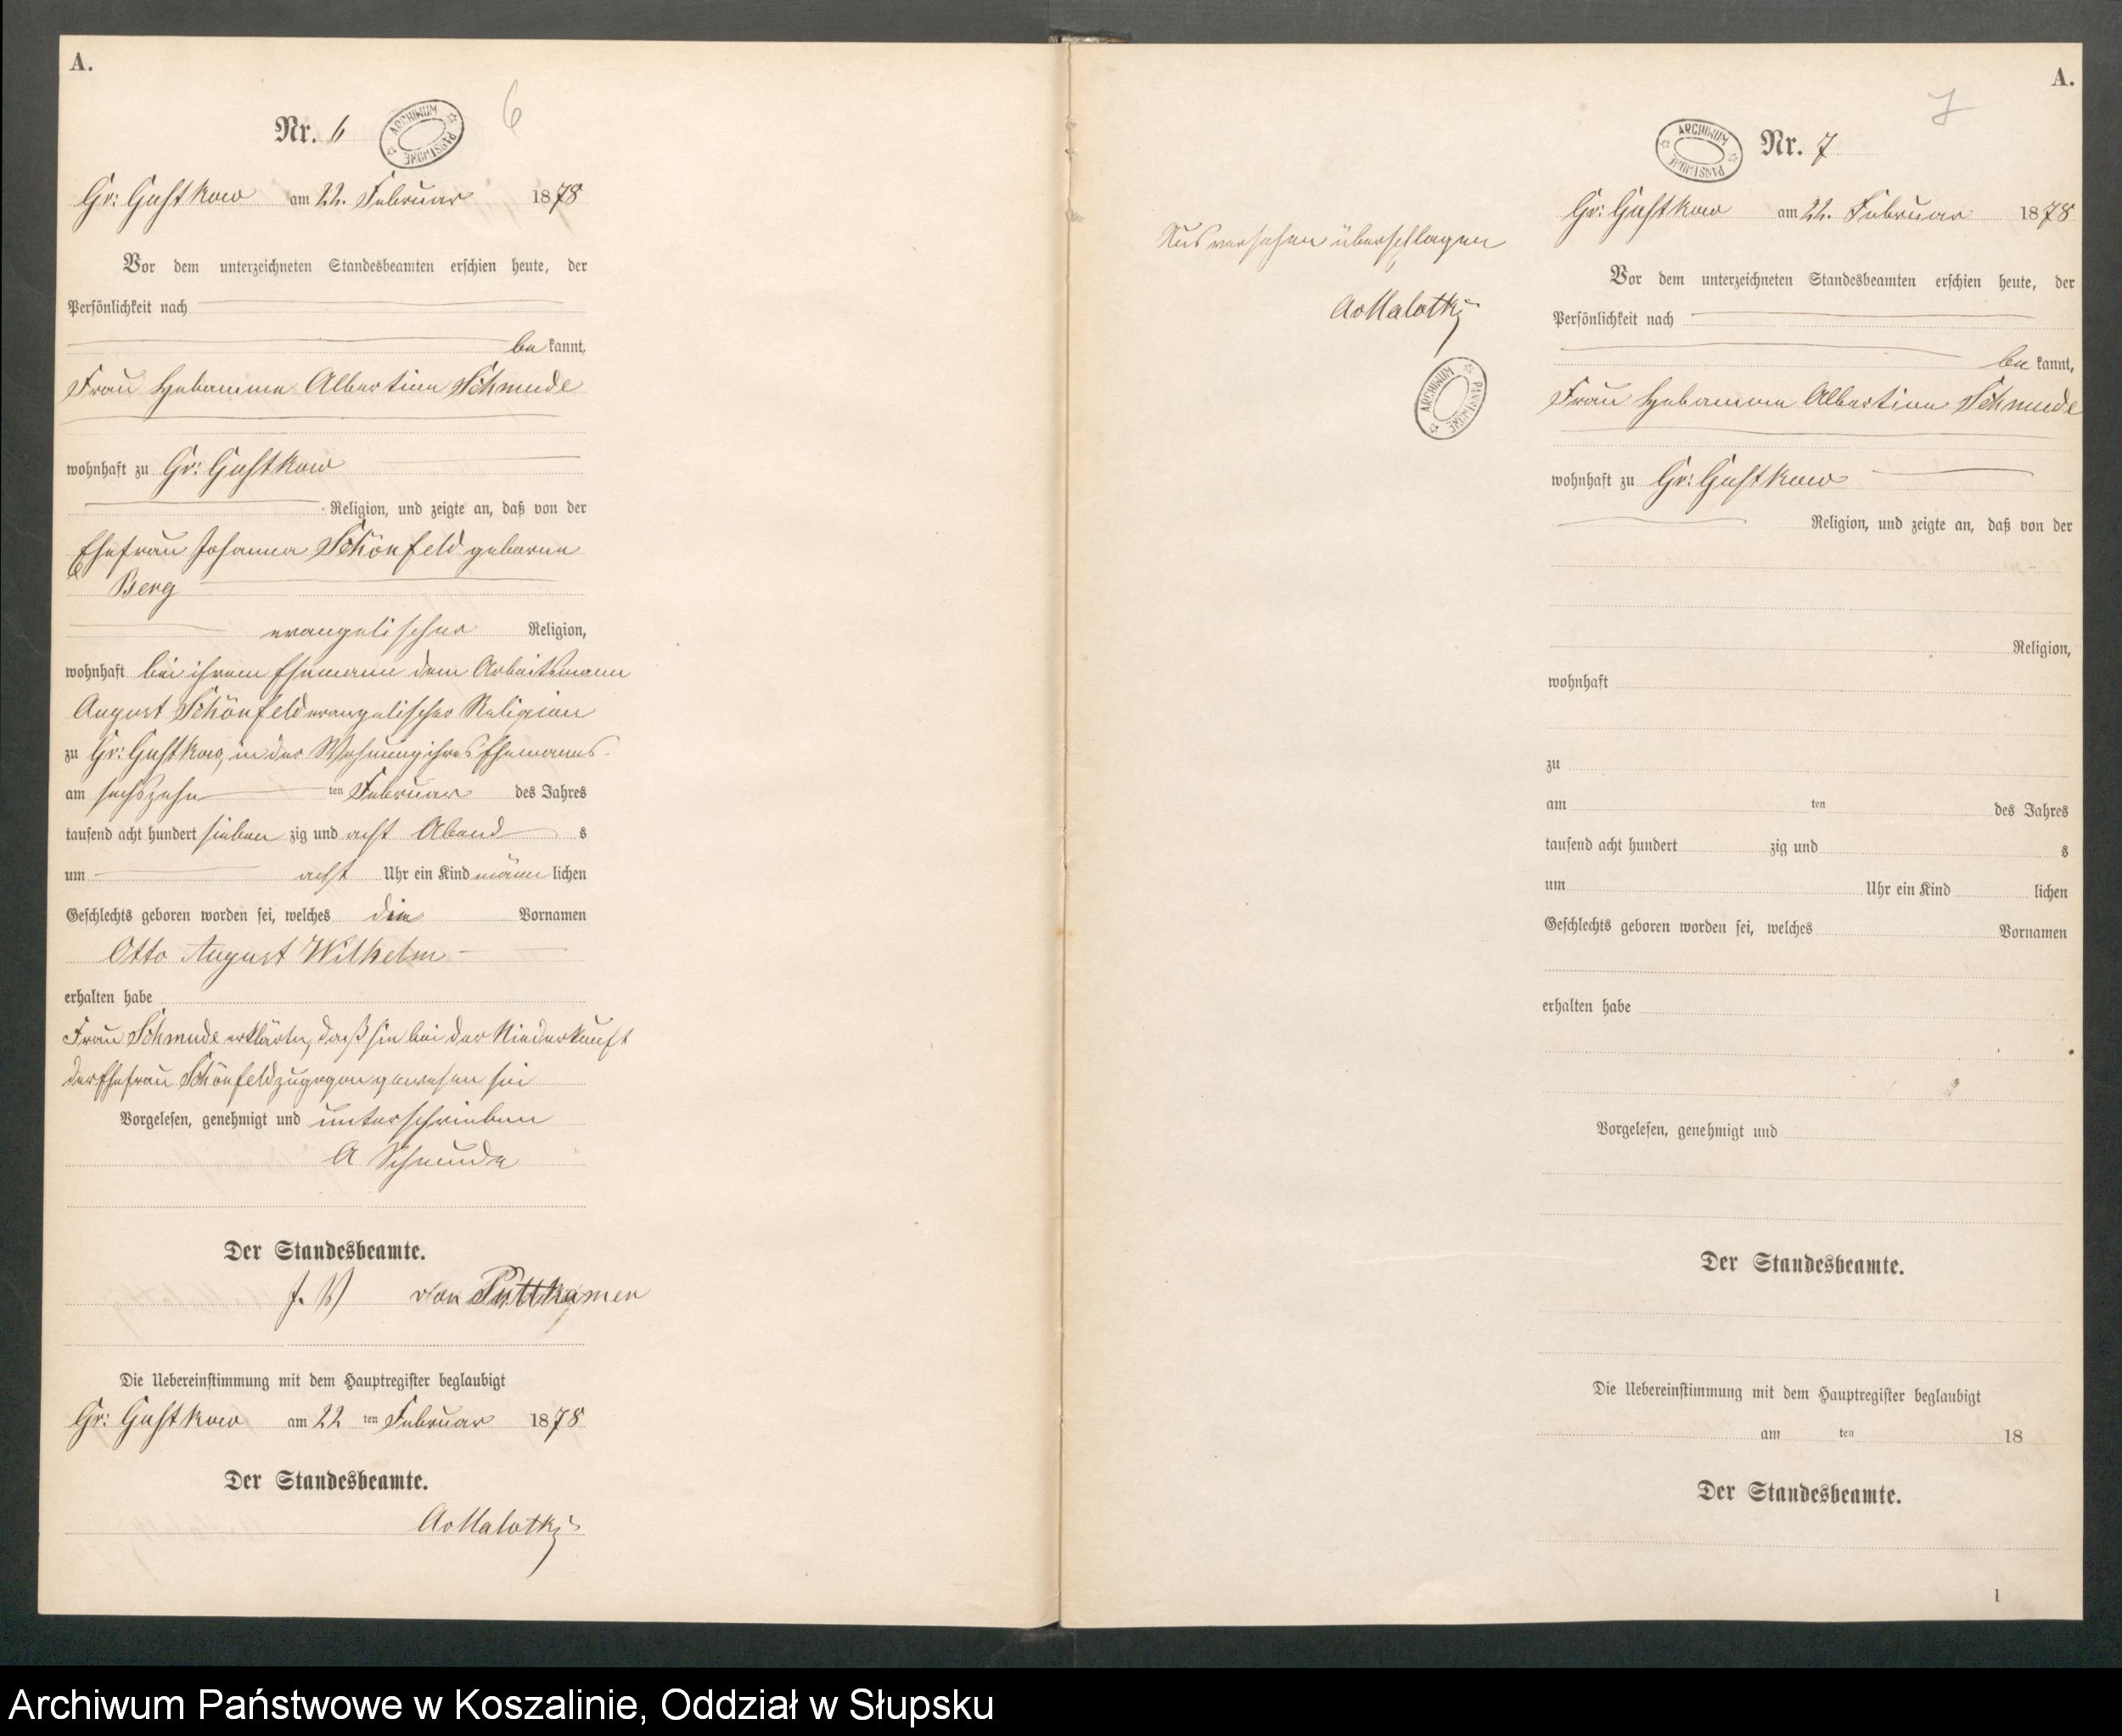 A.
Nr. 6
ARCHIWUM PAŃSTWOWE
6
Gr: Gustkow am 22. Februar 1878
Vor dem unterzeichneten Standesbeamten erschien heute, der
Persönlichkeit nach
be kannt,
Frau Hebamme Albertine Schmude
wohnhaft zu Gr: Gustkow
Religion, und zeigte an, daß von der
Ehefrau Johanna Schönfeld geborne
Berg
evangelischer Religion,
wohnhaft bei ihrem Ehemann dem Arbeitsmann
August Schönfeld evangelischer Religion
zu Gr: Gustkow, in der Wohnung ihres Ehemannes
am sechszehn ten Februar des Jahres
tausend acht hundert sieben zig und acht Abend s
um acht Uhr ein Kind männ lichen
Geschlechts geboren worden sei, welches die Vornamen
Otto August Wilhelm
erhalten habe
Frau Schmude erklärte, daß sie bei der Niederkunft
der Ehefrau Schönfeld zugegen gewesen sei
Vorgelesen, genehmigt und unterschrieben
A Schmude
Der Standesbeamte.
J. V. von Puttkamer
Die Uebereinstimmung mit dem Hauptregister beglaubigt
Gr: Gustkow am 22 ten Februar 1878
Der Standesbeamte.
AvMalotki
A.
7
ARCHIWUM PAŃSTWOWE
Nr. 7
Gr: Gustkow am 22. Februar 1878
Aus versehen überschlagen
AvMalotki
ARCHIWUM PAŃSTWOWE
Vor dem unterzeichneten Standesbeamten erschien heute, der
Persönlichkeit nach
be kannt,
Frau Hebamme Albertine Schmude
wohnhaft zu Gr: Gustkow
Religion, und zeigte an, daß von der
Religion,
wohnhaft
zu
am ten des Jahres
tausend acht hundert zig und s
um Uhr ein Kind lichen
Geschlechts geboren worden sei, welches Vornamen
erhalten habe
Vorgelesen, genehmigt und
Der Standesbeamte.
Die Uebereinstimmung mit dem Hauptregister beglaubigt
am ten 18
Der Standesbeamte.
1
Archiwum Państwowe w Koszalinie, Oddział w Słupsku